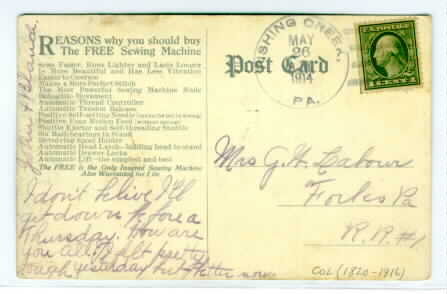 REASONS why you should buy
The FREE Sewing Machine
Sews Faster, Runs Lighter and Lasts Longer
Is More Beautiful and Has Less Vibration
Easier to Operate
Makes a More Perfect Stitch
The Most Powerful Sewing Machine Made
Rotoscillo Movement
Automatic Thread Controller
Automatic Tension Release
Positive Self-setting Needle
Positive Four Motion Feed
Shuttle Ejector and Self-threading Shuttle
Six Ball-bearings in Stand
Spool Holder
Automatic Head Latch—holding head to stand
Automatic Drawer Locks
Automatic Lift—the simplest and best
The FREE is the Only Insured Sewing Machine
Also Warranted for Life
I don't believe I'll
get down before
Thursday. How are
you all. I felt pretty
tough yesterday but better now
Post Card
FISHING CREEK,
MAY
26
1914
PA.
1 CENT 1
Mrs G. W. Labour
Forks Pa
R.R. #1
COL (1820-1916)